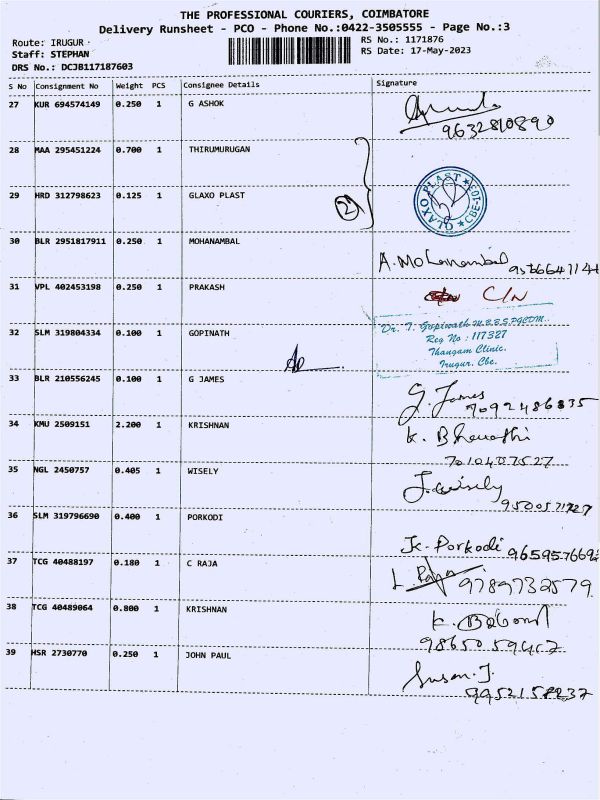 THE PROFESSIONAL COURIERS, COIMBATORE
Delivery Runsheet - PCO - Phone No.:0422-3505555 - Page No.:3
Route: IRUGUR
RS No.: 1171876
Staff: STEPHAN
RS Date: 17-May-2023
DRS No.: DCJB117187603
S No Consignment No Weight PCS Consignee Details Signature
27 KUR 694574149 0.250 1 G ASHOK
9632810890
28 MAA 295451224 0.700 1 THIRUMURUGAN
29 HRD 312798623 0.125 1 GLAXO PLAST 2 GLAXO PLAST
30 BLR 2951817911 0.250 1 MOHANAMBAL A. Mohanambal
31 VPL 402453198 0.250 1 PRAKASH C/N
32 SLM 319804334 0.100 1 GOPINATH Dr. T. Gopinath M.B.B.S,PGCDM..
Reg No : 117327
Thangam Clinic.
Irugur, Cbe.
33 BLR 210556245 0.100 1 G JAMES G. James
7092486835
34 KMU 2509151 2.200 1 KRISHNAN K. Bharathi
7010487527
35 NGL 2450757 0.405 1 WISELY J. wisely
9500571727
36 SLM 319796690 0.400 1 PORKODI K. Porkodi
37 TCG 40488197 0.180 1 C RAJA L. Raja 9789732579
38 TCG 40489064 0.800 1 KRISHNAN
39 HSR 2730770 0.250 1 JOHN PAUL Susan. J.
9952158237